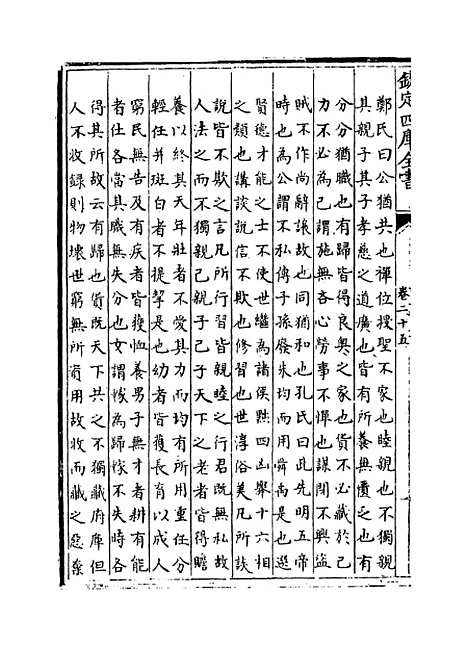 欽定四庫全書
卷二十五
鄭氏曰公猶共也禪位授聖不家也睦親也不獨親
其親子其子孝慈之道廣也皆有所養無匱乏也有
分分猶職也有歸皆得良奥之家也貨不必藏於己
力不必為己謂施無吝心勞事不憚也謀閉不興盜
賊不作尚辭讓故也同猶和也孔氏曰此先明五帝
時也為公謂不私傳子孫廢朱均而用舜禹是也選
賢德才能之士不使世繼為諸侯黜四凶舉十六相
之類也講談說信不欺也修習也世淳俗美凡所談
說皆不欺之言凡所行習皆親睦之行君既無私故
人法之而不獨親己親子己子天下之老者皆得贍
養以終其天年壯者不愛其力而均有所用重任分
輕任并班白者不提挈是也幼者皆獲長育以成人
窮民無告及有疾者皆獲恤養男子無才者耕有能
者仕各當其職無失分也女謂嫁為歸嫁不失時各
得其所故云有歸也貨既天下共之不獨藏府庫但
人不收録則物壞世窮無所資用故收而藏之惡棄